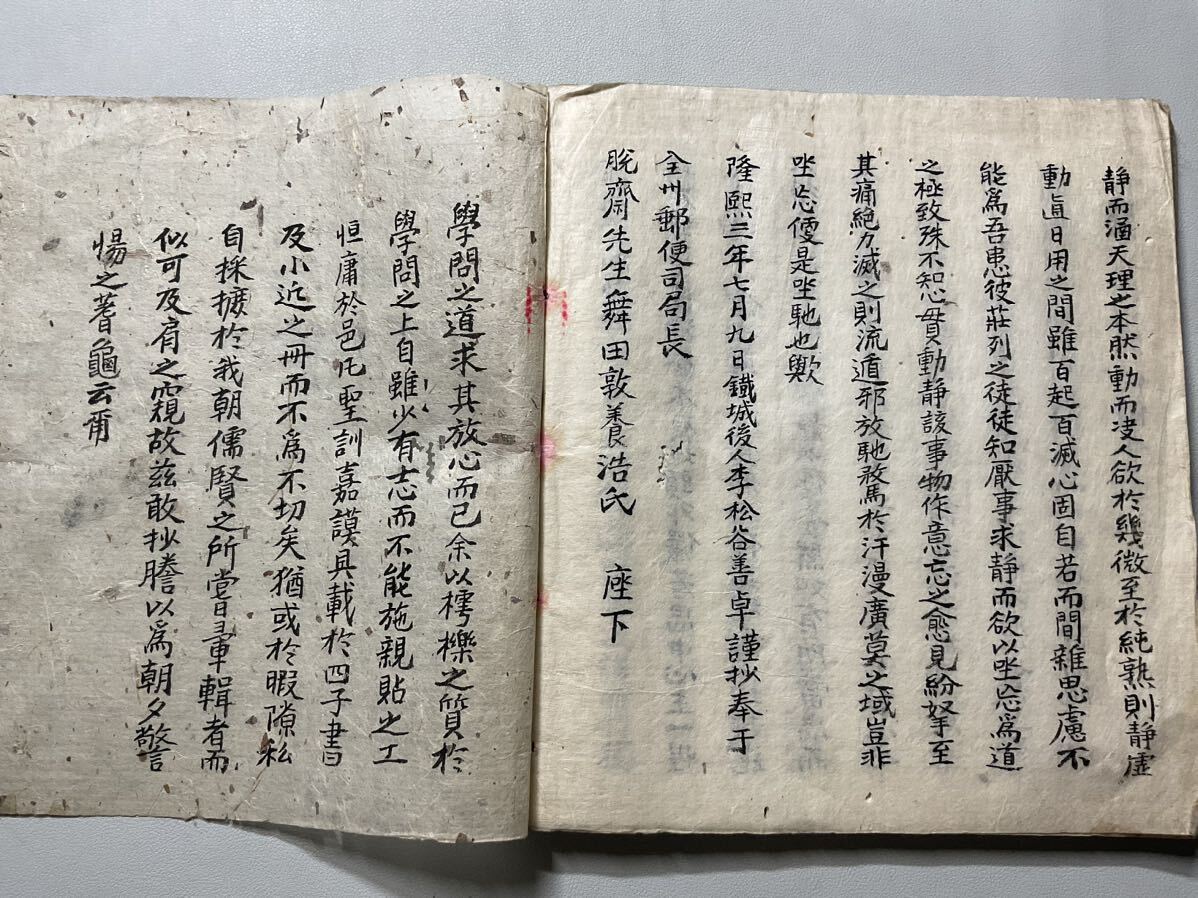 静而涵天理之本然動而决人欲於幾微至於純熟則静虚
動直日用之間雖百起百滅心固自若而間雜思慮不
能爲吾患彼莊列之徒徒知厭事求静而欲以坐忘爲道
之極致殊不知心貫動静該事物作意忘之愈見紛拏至
其痛絶力滅之則流遁邪放馳騖於汗漫廣莫之域豈非
坐忘便是坐馳也歟
隆熙三年七月九日鐵城後人李松谷善卓謹抄奉于
全州郵便司局長
脫齋先生舞田敦善浩氏 座下
學問之道求其放心而已余以樗櫟之質於
學問之上自雖少有志而不能施親貼之工
恒庸於邑凡聖訓嘉謨具載於四子書
及小近之冊而不爲不切矣猶或於暇隙私
自採摭於我朝儒賢之所嘗輯者而
似可及肩之窺故玆敢抄謄以爲朝夕警
惕之蓍龜云爾